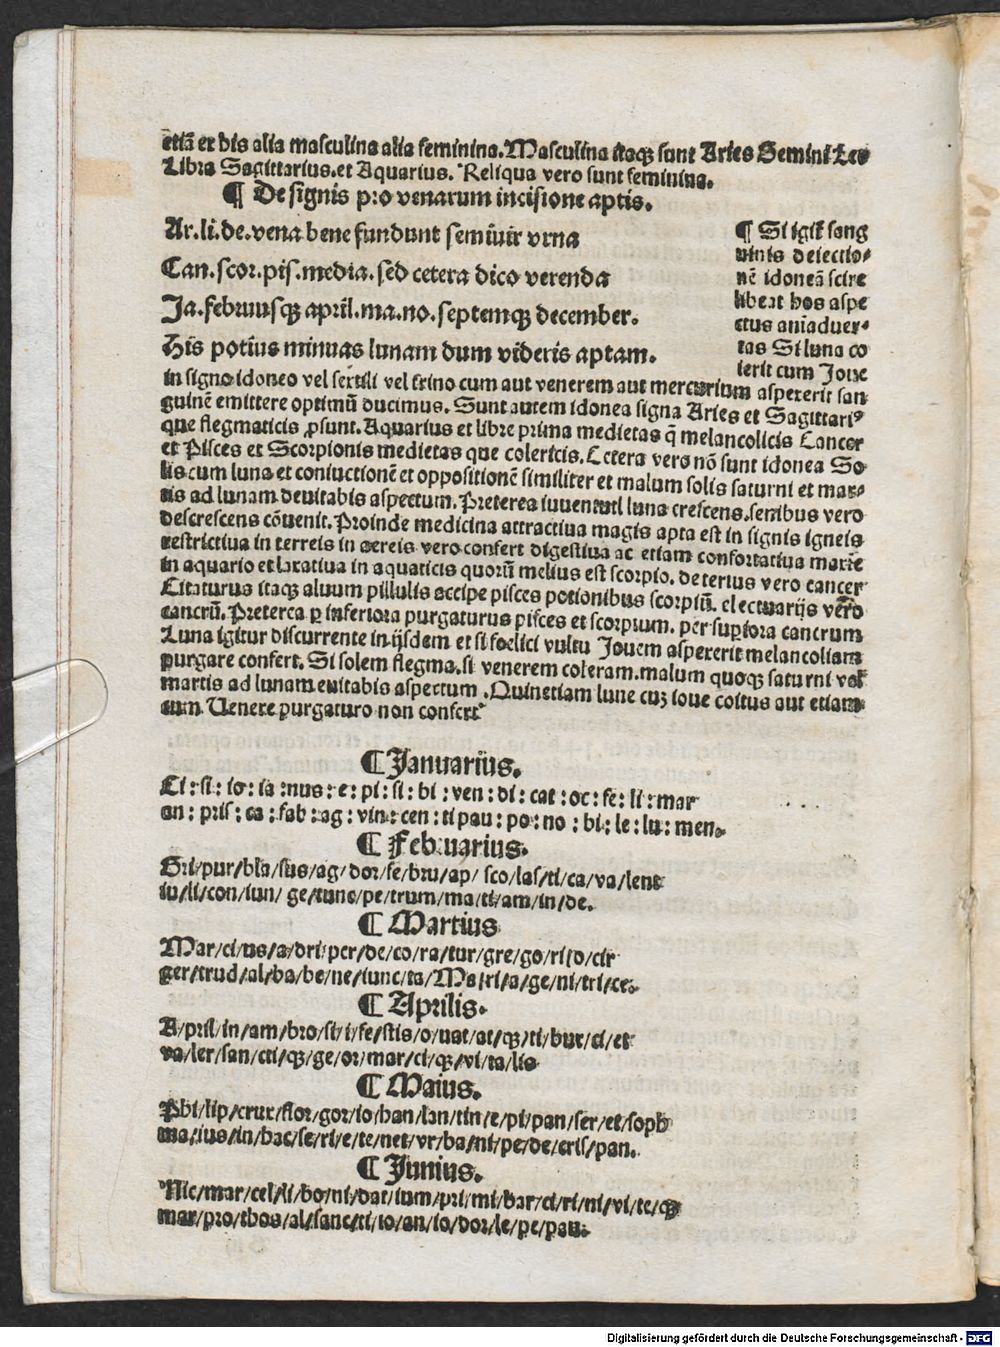 etiā et his alia masculina alia feminina. Masculina itaqꝫ sunt Aries Gemini Leo
Libra Sagittarius. et Aquarius. Reliqua vero sunt feminina.
¶ De signis pro venarum incisione aptis.
Ar. li. de. vena bene fundunt semiuir vrna
Can. scor. pis. media. sed cetera dico verenda
Ja. februusqꝫ april. ma. no. septemqꝫ december.
His potius minuas lunam dum videris aptam.
¶ Si igit sang
uinis deiectio⸗
nē idoneā scire
libeat hos aspe
ctus aniaduer⸗
tas Si luna co
ierit cum Joue
in signo idoneo vel sextili vel trino cum aut venerem aut mercurium aspexerit san
guinē emittere optimū ducimus. Sunt autem idonea signa Aries et Sagittariꝰ
que flegmaticis ꝓsunt. Aquarius et libre prima medietas q̄ melancolicis Cancer
et Pisces et Scorpionis medietas que colericis. Cetera vero nō sunt idonea So
lis cum luna et coniuctionē et oppositionē similiter et malum solis saturni et mar⸗
tis ad lunam deuitabis aspectum. Preterea iuuen luna crescens. senibus vero
descrescens cōuenit. Proinde medicina attractiua magis apta est in signis igneis
restrictiua in terreis in aereis vero confert digestiua ac etiam confortatiua maxīe
in aquario et laxatiua in aquaticis quorū melius est scorpio. deterius vero cancer
Citaturus itaqꝫ aluum pillulis accipe pisces potionibus scorpiū. electuarijs vero
cancrū. Preterea ꝑ inferiora purgaturus pisces et scorpium. per suꝑiora cancrum
Luna igitur discurrente in ijsdem et si foelici vultu Jouem aspexerit melancoliam
purgare confert. Si solem flegma. si venerem coleram. malum quoqꝫ saturni vel
martis ad lunam euitabis aspectum. Quinetiam lune cuꝫ ioue coitus aut etiam
cum Uenere purgaturo non confert
¶ Januarius.
Ci : si : io : ia : nus : e : pi : si : bi : ven : di : cat : oc : fe : li : mar
an : pris : ca : fab : ag : vin : cen : ti pau : po : no : bi : le : lu : men.
¶ Februarius.
Bri/pur/bla/sus/ag/dor/fe/bru/ap/ sco/las/ti/ca/va/lent
iu/li/con/iun/ ge/tunc/pe/trum/ma/ti/am/in/de.
¶ Martius
Mar/ci/us/a/dri/per/de/co/ra/tur/gre/go/ri/o/cir
ger/trud/al/ba/be/ne/iunc/ta/Ma/ri/a/ge/ni/tri/ce.
¶ Aprilis.
A/pril/in/am/bro/si/i/fe/stis/o/uat/at/qꝫ/ti/bur/ci/et
va/ler/san/cti/qꝫ/ge/or/mar/ci/qꝫ/vi/ta/lis
¶ Maius.
Phi/lip/crux/flor/gor/io/han/lan/tin/e/pi/pan/ser/et/soph
ma/ius/in/hac/se/ri/e/te/net/vr/ba/ni/pe/de/cris/pan.
¶ Junius.
Nic/mar/cel/li/bo/ni/dat/ium/pri/mi/bar/ci/ri/ni/vi/te/qꝫ
mar/pro/thos/al/sanc/ti/io/an/io/dor/le/pe/pau.
Digitalisierung gefördert durch die Deutsche Forschungsgemeinschaft - DFG